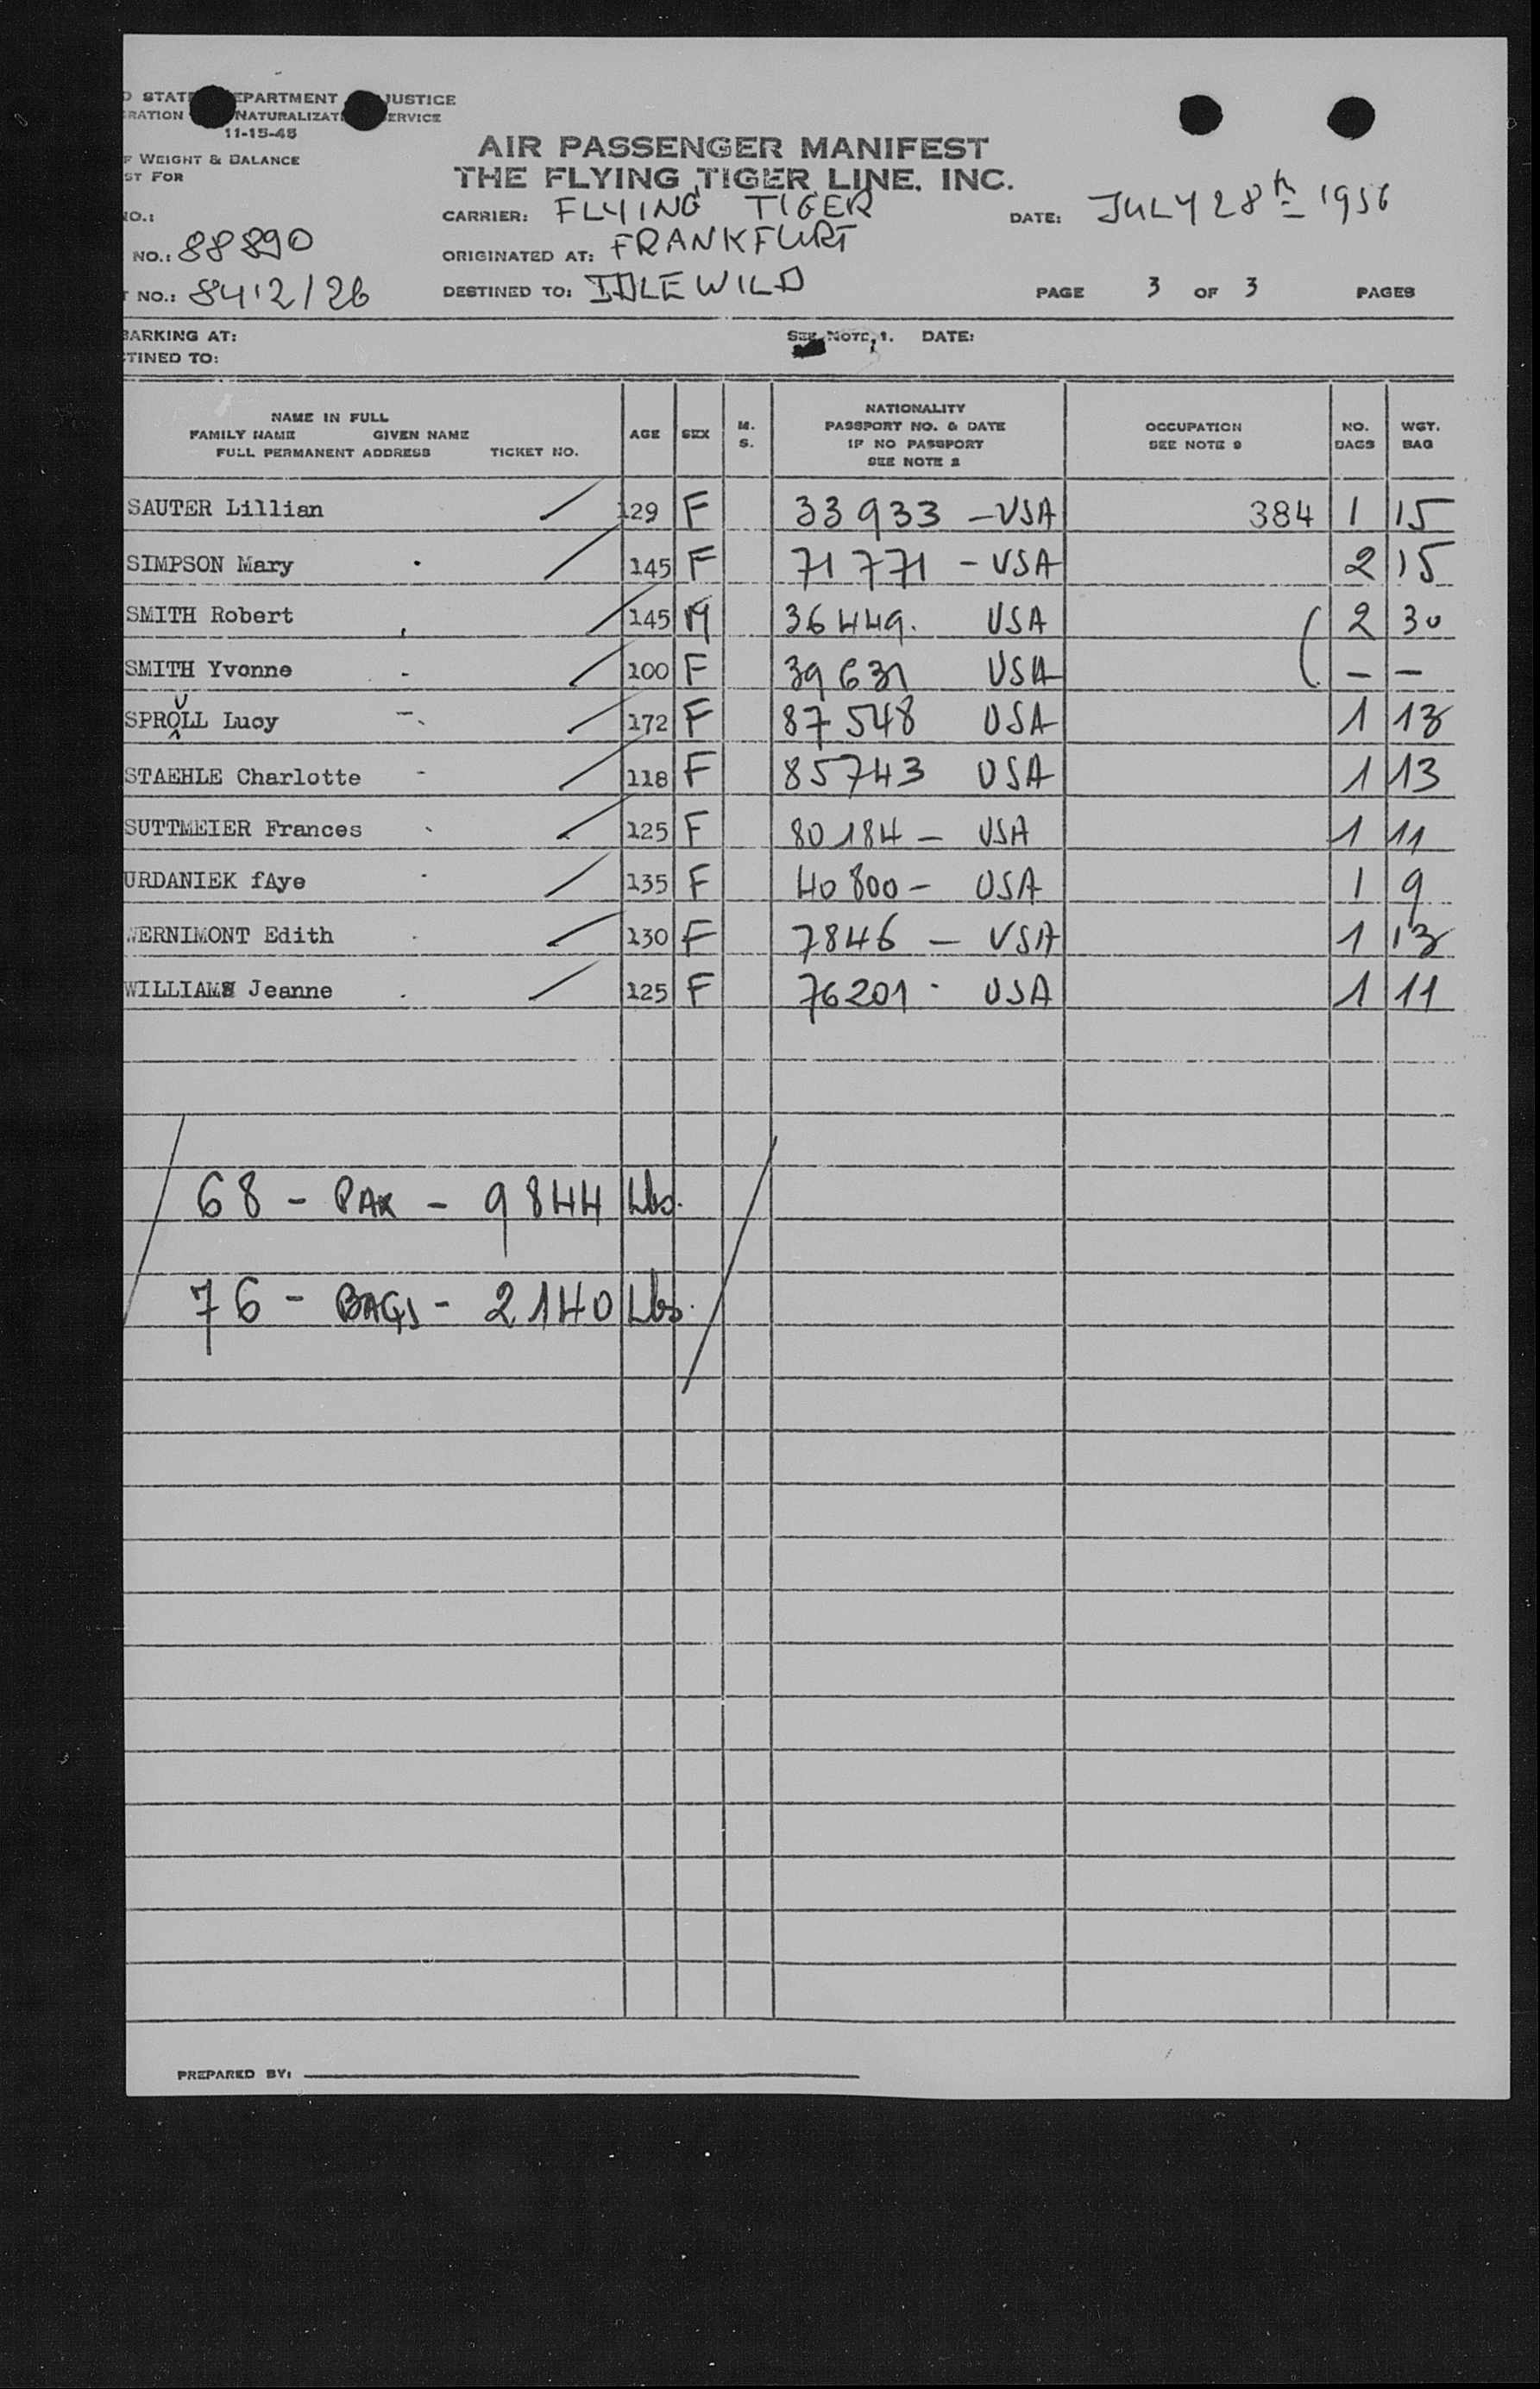 D STAT EPARTMENT JUSTICE
RATION NATURALIZAT ERVICE
11-15-45
F WEIGHT & BALANCE
ST FOR
AIR PASSENGER MANIFEST
THE FLYING TIGER LINE, INC.
NO.:
CARRIER: FLYING TIGER DATE: JULY 28th 1956
NO.: 88890 ORIGINATED AT: FRANKFURT
T NO.: 8412/26 DESTINED TO: IDLEWILD PAGE 3 OF 3 PAGES
BARKING AT: SEE NOTE 1. DATE:
TINED TO:
NAME IN FULL
FAMILY NAME GIVEN NAME
FULL PERMANENT ADDRESS TICKET NO.
AGE SEX M. S.
NATIONALITY
PASSPORT NO. & DATE
IF NO PASSPORT
SEE NOTE 2
OCCUPATION
SEE NOTE 9
NO. BAGS
WGT. BAG
SAUTER Lillian 129 F 33933 - USA 384 1 15
SIMPSON Mary 145 F 71771 - USA 2 15
SMITH Robert 145 M 36449. USA 2 30
SMITH Yvonne 100 F 39631 USA - -
SPROULL Lucy 172 F 87548 USA 1 13
STAEHLE Charlotte 118 F 85743 USA 1 13
SUTTMEIER Frances 125 F 80184 - USA 1 11
URDANIEK fAye 135 F 40800 - USA 1 9
WERNIMONT Edith 130 F 7846 - USA 1 13
WILLIAMS Jeanne 125 F 76201 - USA 1 11
68 - PAX - 9844 Lbs.
76 - BAGS - 2140 Lbs.
PREPARED BY: